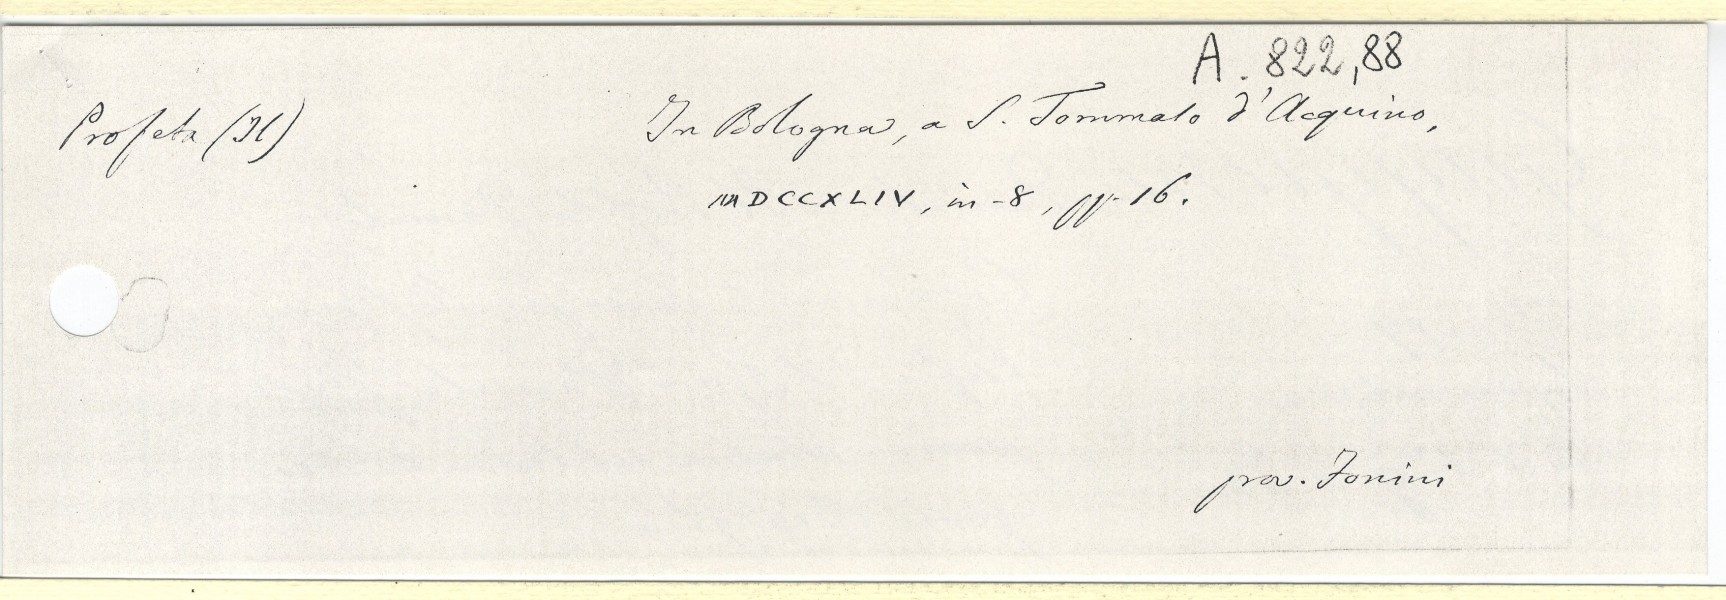 A. 822,88
Profeta (Il)
In Bologna, a S. Tommaso d'Acquino,
MDCCXLIV, in-8, pp. 16.
prov. Zonini